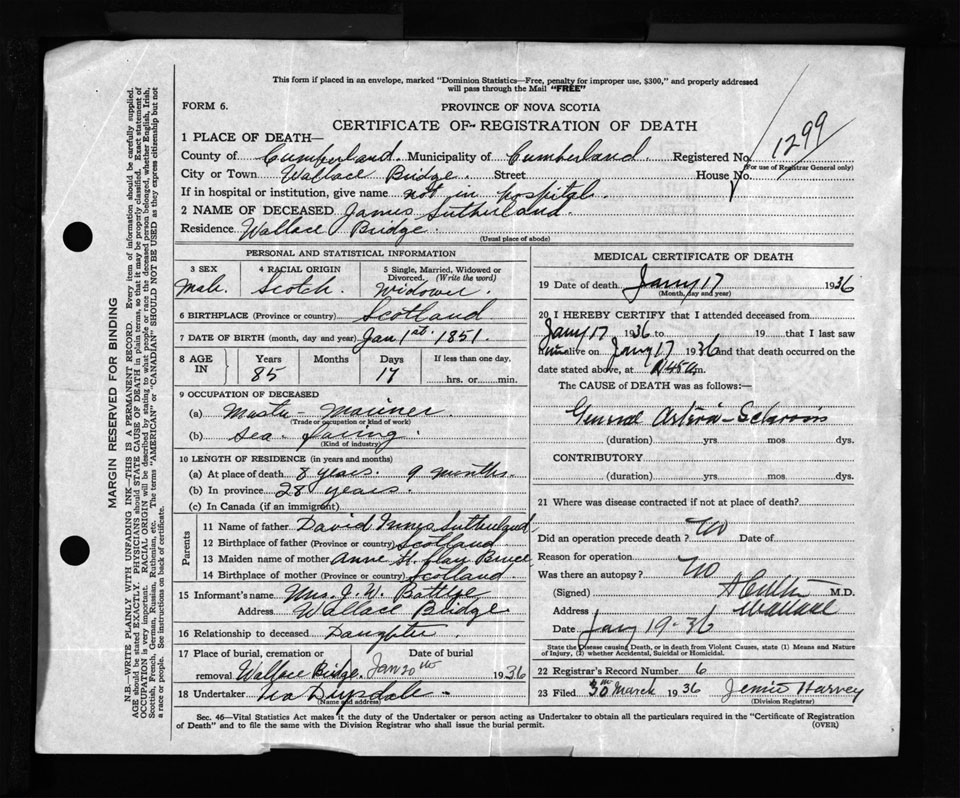 This form if placed in an envelope, marked "Dominion Statistics—Free, penalty for improper use, $300," and properly addressed
will pass through the Mail "FREE"
FORM 6. PROVINCE OF NOVA SCOTIA
CERTIFICATE OF REGISTRATION OF DEATH
1299
1 PLACE OF DEATH—
County of Cumberland. Municipality of Cumberland. Registered No.
(For use of Registrar General only)
City or Town Wallace Bridge. Street House No.
If in hospital or institution, give name not in hospital.
2 NAME OF DECEASED James Sutherland.
Residence Wallace Bridge.
(Usual place of abode)
PERSONAL AND STATISTICAL INFORMATION
3 SEX 4 RACIAL ORIGIN 5 Single, Married, Widowed or
Divorced. (Write the word)
Male. Scotch. Widower.
6 BIRTHPLACE (Province or country) Scotland
7 DATE OF BIRTH (month, day and year) Jan 1st. 1851.
8 AGE IN Years Months Days If less than one day.
85 17 hrs. or min.
9 OCCUPATION OF DECEASED
(a) Master - Mariner.
(Trade or occupation or kind of work)
(b) Sea-faring.
(Kind of industry)
10 LENGTH OF RESIDENCE (in years and months)
(a) At place of death 8 years. 9 months.
(b) In province 28 years.
(c) In Canada (if an immigrant)
Parents
11 Name of father David Innes Sutherland
12 Birthplace of father (Province or country) Scotland
13 Maiden name of mother Anne St. Clay Bruce
14 Birthplace of mother (Province or country) Scotland.
15 Informant's name Mrs. J. W.
Address Wallace Bridge
16 Relationship to deceased Daughter.
17 Place of burial, cremation or Date of burial
removal Wallace Bridge. Jan 20th 1936
18 Undertaker Drysdale.
(Name and address)
MEDICAL CERTIFICATE OF DEATH
19 Date of death Jany 17 1936
(Month, day and year)
20 I HEREBY CERTIFY that I attended deceased from
Jany 17 1936 to 19 that I last saw
him alive on Jany 17 1936 and that death occurred on the
date stated above, at m.
The CAUSE OF DEATH was as follows:—
General Arterio-Sclerosis
(duration) yrs. mos. dys.
CONTRIBUTORY
(duration) yrs. mos. dys.
21 Where was disease contracted if not at place of death?
Did an operation precede death? No Date of
Reason for operation
Was there an autopsy? No
(Signed) M.D.
Address Wallace
Date Jany 19-36
State the Disease causing Death, or in death from Violent Causes, state (1) Means and Nature
of Injury, (2) whether Accidental, Suicidal or Homicidal.
22 Registrar's Record Number 6
23 Filed 30th March 1936 Jennie Harvey
(Division Registrar)
Sec. 46—Vital Statistics Act makes it the duty of the Undertaker or person acting as Undertaker to obtain all the particulars required in the "Certificate of Registration
of Death" and to file the same with the Division Registrar who shall issue the burial permit. (OVER)
MARGIN RESERVED FOR BINDING
N.B.—WRITE PLAINLY WITH UNFADING INK—THIS IS A PERMANENT RECORD. Every item of information should be carefully supplied.
AGE should be stated EXACTLY. PHYSICIANS should STATE CAUSE OF DEATH in plain terms, so that it may be properly classified. Exact statement of
OCCUPATION is very important. RACIAL ORIGIN will be described by stating to what people or race the deceased person belonged, whether English, Irish,
Scottish, French, German, Russian, Ruthenian, etc. The terms "AMERICAN" or "CANADIAN" SHOULD NOT BE USED as they express citizenship but not
a race or people. See instructions on back of certificate.